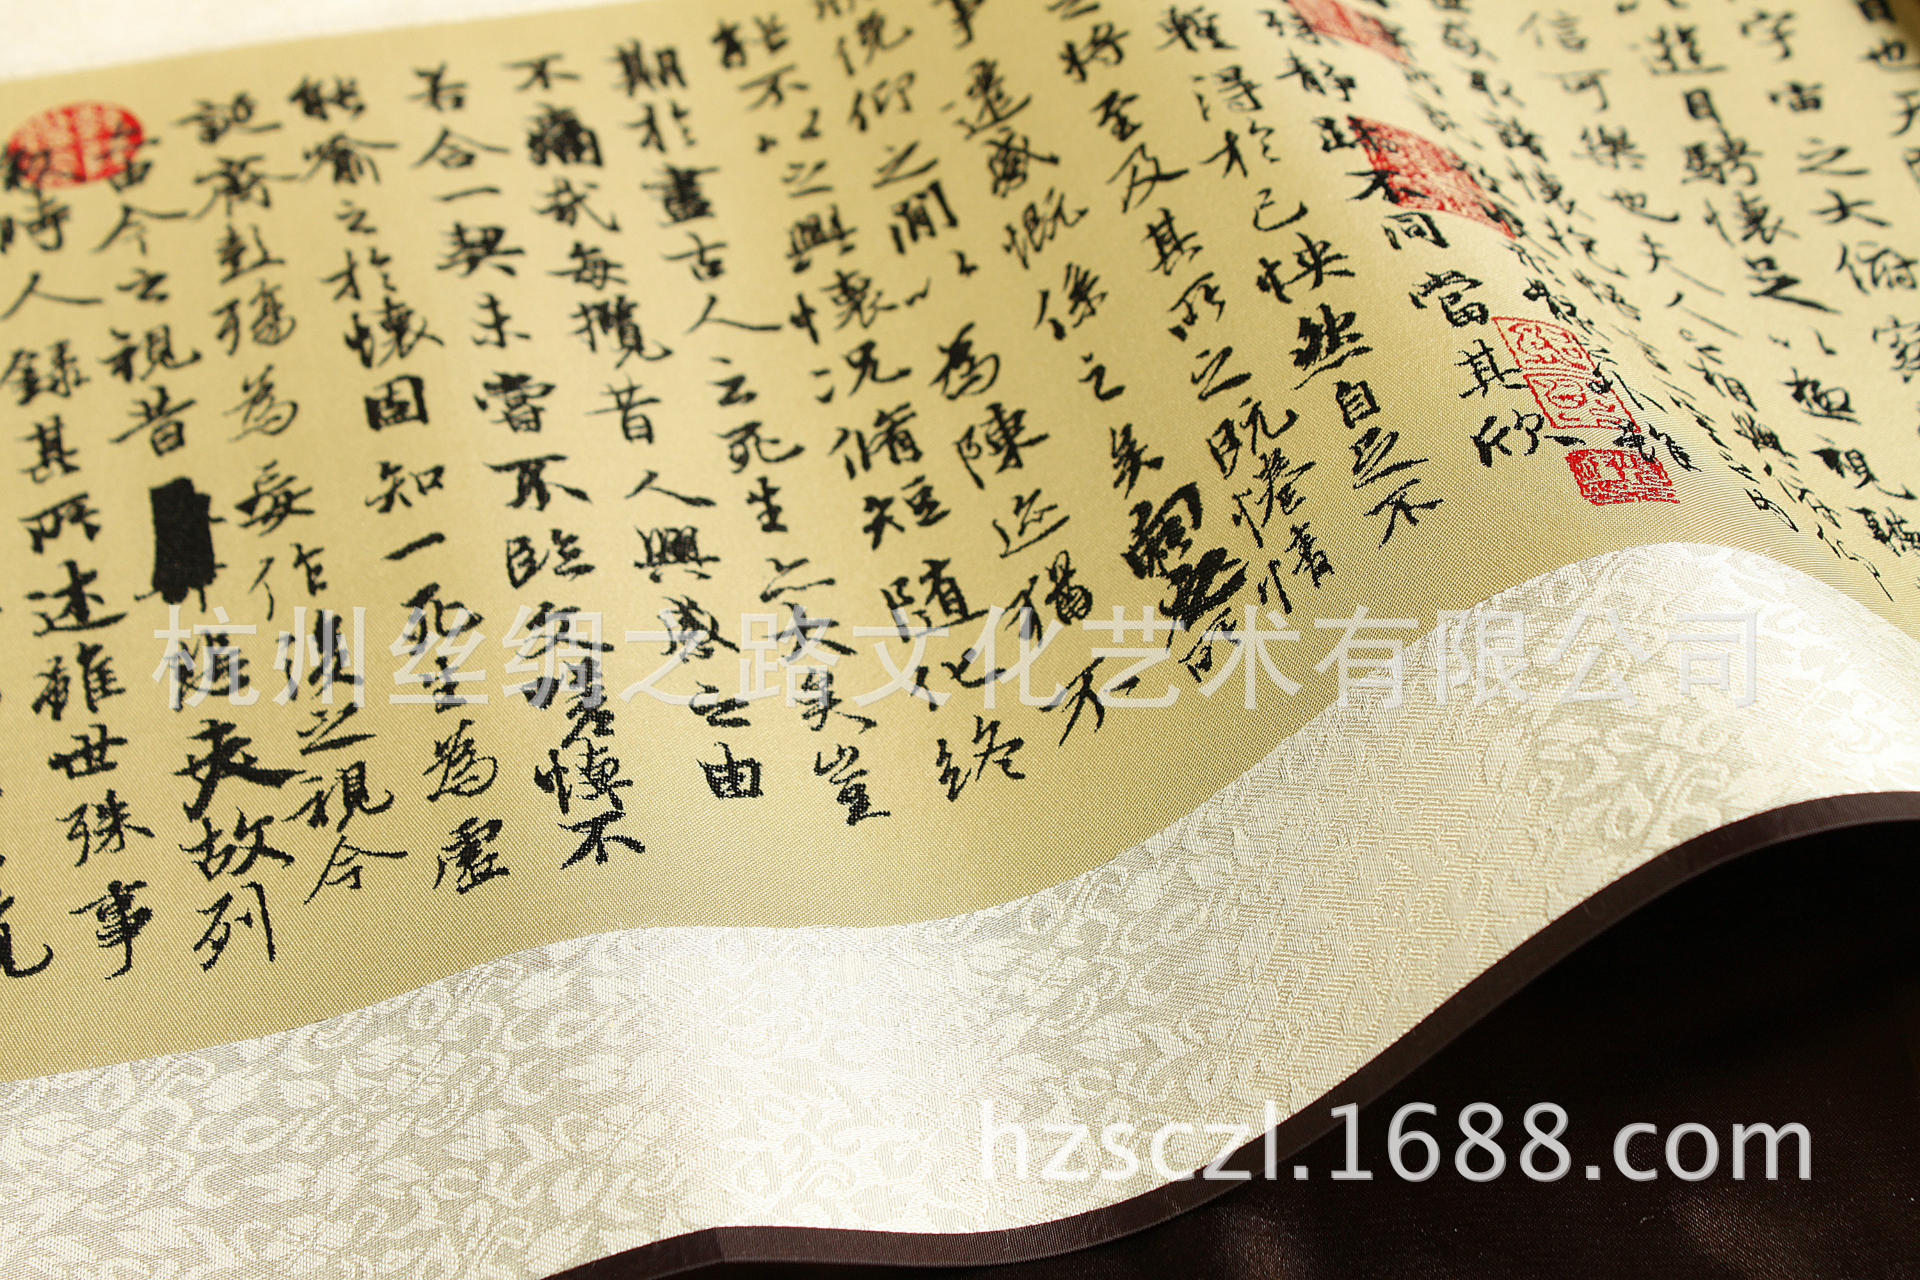 也天
宇宙之大俯察
遊目騁懷足以極視聽
信可樂也夫人之相與俯仰
取諸懷抱悟言一室之內
雖
殊靜躁不同當其欣
暫得於己快然自足不
之將至及其所之既惓情
事遷感慨係之矣向之所
俛仰之間以為陳迹猶不
能不以之興懷況脩短隨化終
期於盡古人云死生亦大矣豈
不痛哉每攬昔人興感之由
若合一契未嘗不臨文嗟悼不
能喻之於懷固知一死生為虛
誕齊彭殤為妄作後之視今
今之視昔悲夫故列
時人錄其所述雖世殊事
杭州丝绸之路文化艺术有限公司
hzsczl.1688.com